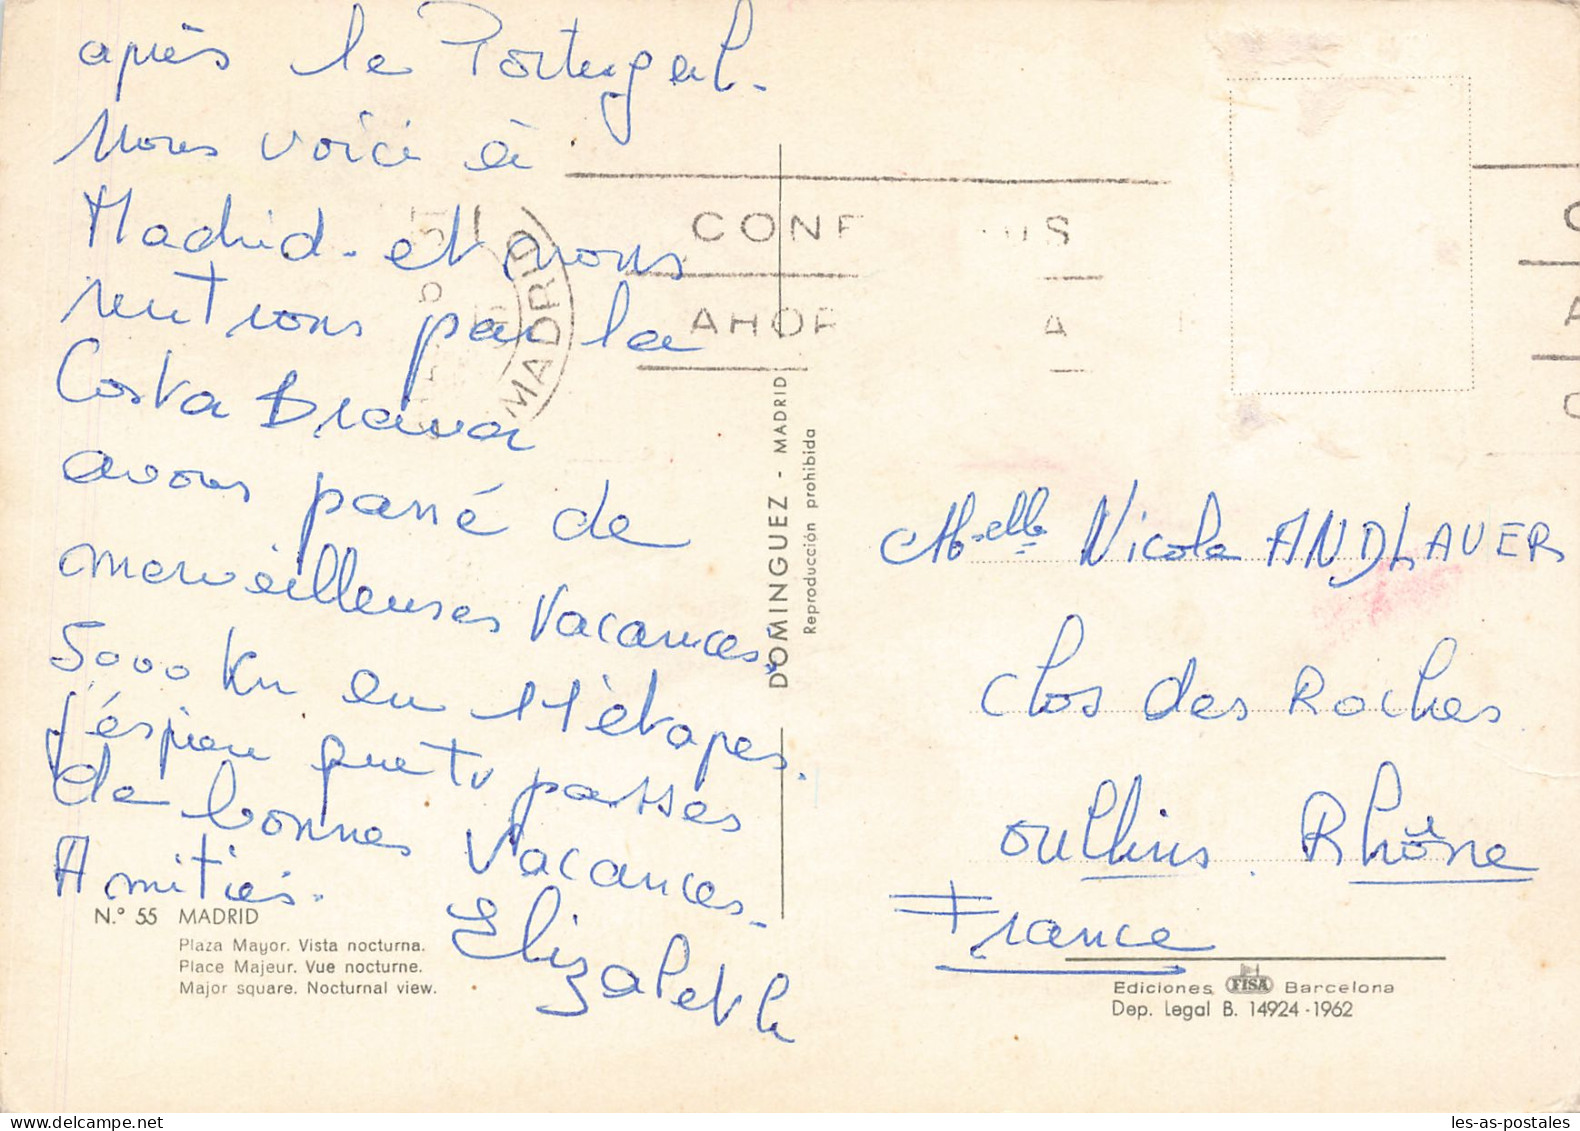 après le Portugal.
Nous voici à
Madrid - et nous
rentrons par la
Costa Brava
avons passé de
merveilleuses vacances.
5000 km en 11 étapes.
J'éspère que tu passes
de bonnes vacances.
Amitiés.
Elizabeth
N.º 55 MADRID
Plaza Mayor. Vista nocturna.
Place Majeur. Vue nocturne.
Major square. Nocturnal view.
DOMINGUEZ - MADRID
Reproducción prohibida
MADRID
CONF
US
AHOR
A
Melle Nicole ANDLAUER
Clos des Roches
Oullins. Rhône
France
Ediciones FISA Barcelona
Dep. Legal B. 14924 - 1962
delcampe.net
les-as-postales